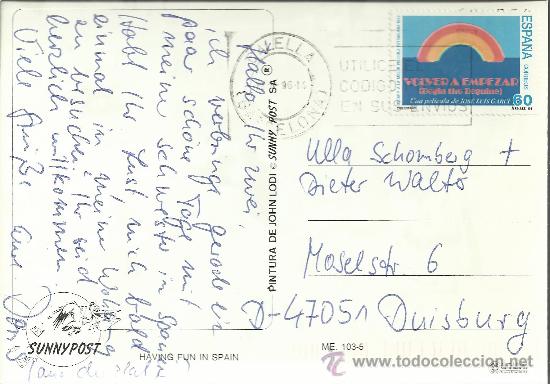 Hallo Ihr zwei,
ich verbringe gerade ein
paar schöne Tage mit
meiner Schwester in Spanien
Habt Ihr Lust mich bald
einmal in meiner Wohnung
zu besuchen? Ihr seid
herzlich willkommen
Viele Grüße
SUNNYPOST
HAVING FUN IN SPAIN
PINTURA DE JOHN LODI © SUNNY POST SA ®
ME. 103-5
BARCELONA
UTILICE EL
CODIGO
EN SUS ENVIOS
ESPAÑA
CORREOS
VOLVER A EMPEZAR
(Begin the Beguine)
Una película de JOSÉ LUIS GARCI
60
Ulla Schomberg +
Dieter Walto
Moselstr 6
D-47051 Duisburg
TC www.todocoleccion.net